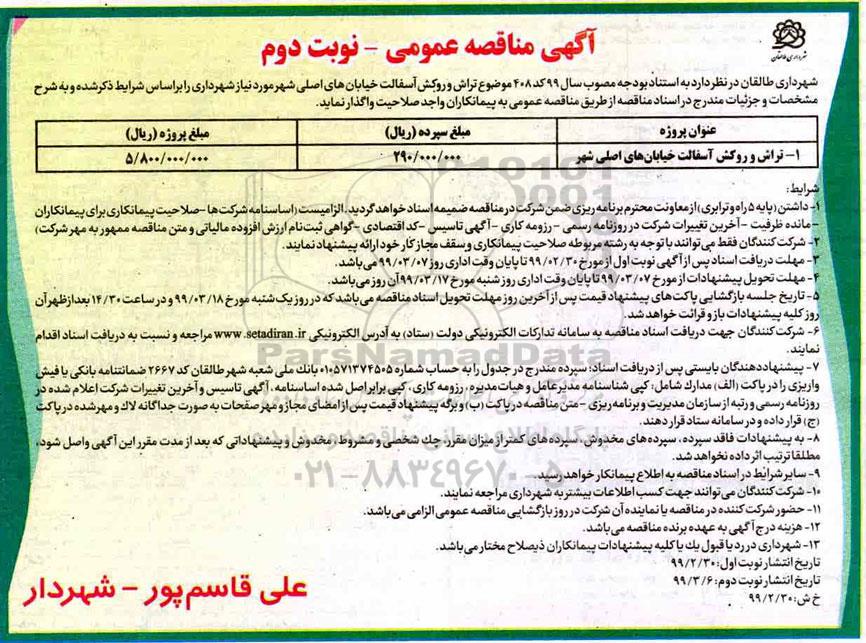 شهرداری طالقان
آگهی مناقصه عمومی - نوبت دوم
شهرداری طالقان در نظر دارد به استناد بودجه مصوب سال ۹۹ کد ۴۰۸ موضوع تراش و روکش آسفالت خیابان های اصلی شهر مورد نیاز شهرداری را براساس شرایط ذکر شده و به شرح
مشخصات و جزئیات مندرج در اسناد مناقصه از طریق مناقصه عمومی به پیمانکاران واجد صلاحیت واگذار نماید.
عنوان پروژه مبلغ سپرده (ریال) مبلغ پروژه (ریال)
۱- تراش و روکش آسفالت خیابان‌های اصلی شهر ۲۹۰/۰۰۰/۰۰۰ ۵/۸۰۰/۰۰۰/۰۰۰
شرایط:
۱- داشتن (پایه ۵ راه و ترابری) از معاونت محترم برنامه ریزی ضمن شرکت در مناقصه ضمیمه اسناد خواهد گردید. الزامیست (اساسنامه شرکت ها -صلاحیت پیمانکاری برای پیمانکاران
-مانده ظرفیت - آخرین تغییرات شرکت در روزنامه رسمی - رزومه کاری - آگهی تاسیس -کد اقتصادی -گواهی ثبت نام ارزش افزوده مالیاتی و متن مناقصه ممهور به مهر شرکت)
۲- شرکت کنندگان فقط می‌توانند با توجه به رشته مربوطه صلاحیت پیمانکاری و سقف مجاز کار خود ارائه پیشنهاد نمایند.
۳- مهلت دریافت اسناد پس از آگهی نوبت اول از مورخ ۹۹/۰۲/۳۰ تا پایان وقت اداری روز ۹۹/۰۳/۰۷ می‌باشد.
۴- مهلت تحویل پیشنهادات از مورخ ۹۹/۰۳/۰۷ تا پایان وقت اداری روز شنبه مورخ ۹۹/۰۳/۱۷ آن روز می‌باشد.
۵- تاریخ جلسه بازگشایی پاکت‌های پیشنهاد قیمت پس از آخرین روز مهلت تحویل اسناد مناقصه می‌باشد که در روز یک شنبه مورخ ۹۹/۰۳/۱۸ و در ساعت ۱۴/۳۰ بعدازظهر آن
روز کلیه پیشنهادات باز و قرائت خواهد شد.
۶- شرکت کنندگان جهت دریافت اسناد مناقصه به سامانه تدارکات الکترونیکی دولت (ستاد) به آدرس الکترونیکی www.setadiran.ir مراجعه و نسبت به دریافت اسناد اقدام
نمایند.
۷- پیشنهاددهندگان بایستی پس از دریافت اسناد: سپرده مندرج در جدول را به حساب شماره ۰۱۰۵۷۱۳۷۴۵۰۵ بانک ملی شعبه شهر طالقان کد ۲۶۶۷ ضمانتنامه بانکی یا فیش
واریزی را در پاکت (الف) مدارک شامل: کپی شناسنامه مدیرعامل و هیات مدیره، رزومه کاری، کپی برابر اصل شده اساسنامه، آگهی تاسیس و آخرین تغییرات شرکت اعلام شده در
روزنامه رسمی و رتبه از سازمان مدیریت و برنامه ریزی - متن مناقصه در پاکت (ب) و برگه پیشنهاد قیمت پس از امضای مجاز و مهر صفحات به صورت جداگانه لاک و مهر شده در پاکت
(ج) قرار داده و در سامانه ستاد قرار دهند.
۸- به پیشنهادات فاقد سپرده، سپرده‌های مخدوش، سپرده‌های کمتر از میزان مقرر، چک شخصی و مشروط، مخدوش و پیشنهاداتی که بعد از مدت مقرر این آگهی واصل شود،
مطلقا ترتیب اثر داده نخواهد شد.
۹- سایر شرایط در اسناد مناقصه به اطلاع پیمانکار خواهد رسید.
۱۰- شرکت کنندگان می‌توانند جهت کسب اطلاعات بیشتر به شهرداری مراجعه نمایند.
۱۱- حضور شرکت کننده در مناقصه یا نماینده آن شرکت در روز بازگشایی مناقصه عمومی الزامی می‌باشد.
۱۲- هزینه درج آگهی به عهده برنده مناقصه می‌باشد.
۱۳- شهرداری در رد یا قبول یک یا کلیه پیشنهادات پیمانکاران ذیصلاح مختار می‌باشد.
تاریخ انتشار نوبت اول: ۹۹/۲/۳۰
تاریخ انتشار نوبت دوم: ۹۹/۳/۶
خ ش: ۹۹/۲/۳۰
علی قاسم پور - شهردار
ParsNamadData
۰۲۱-۸۸۳۴۹۶۷۰-۵